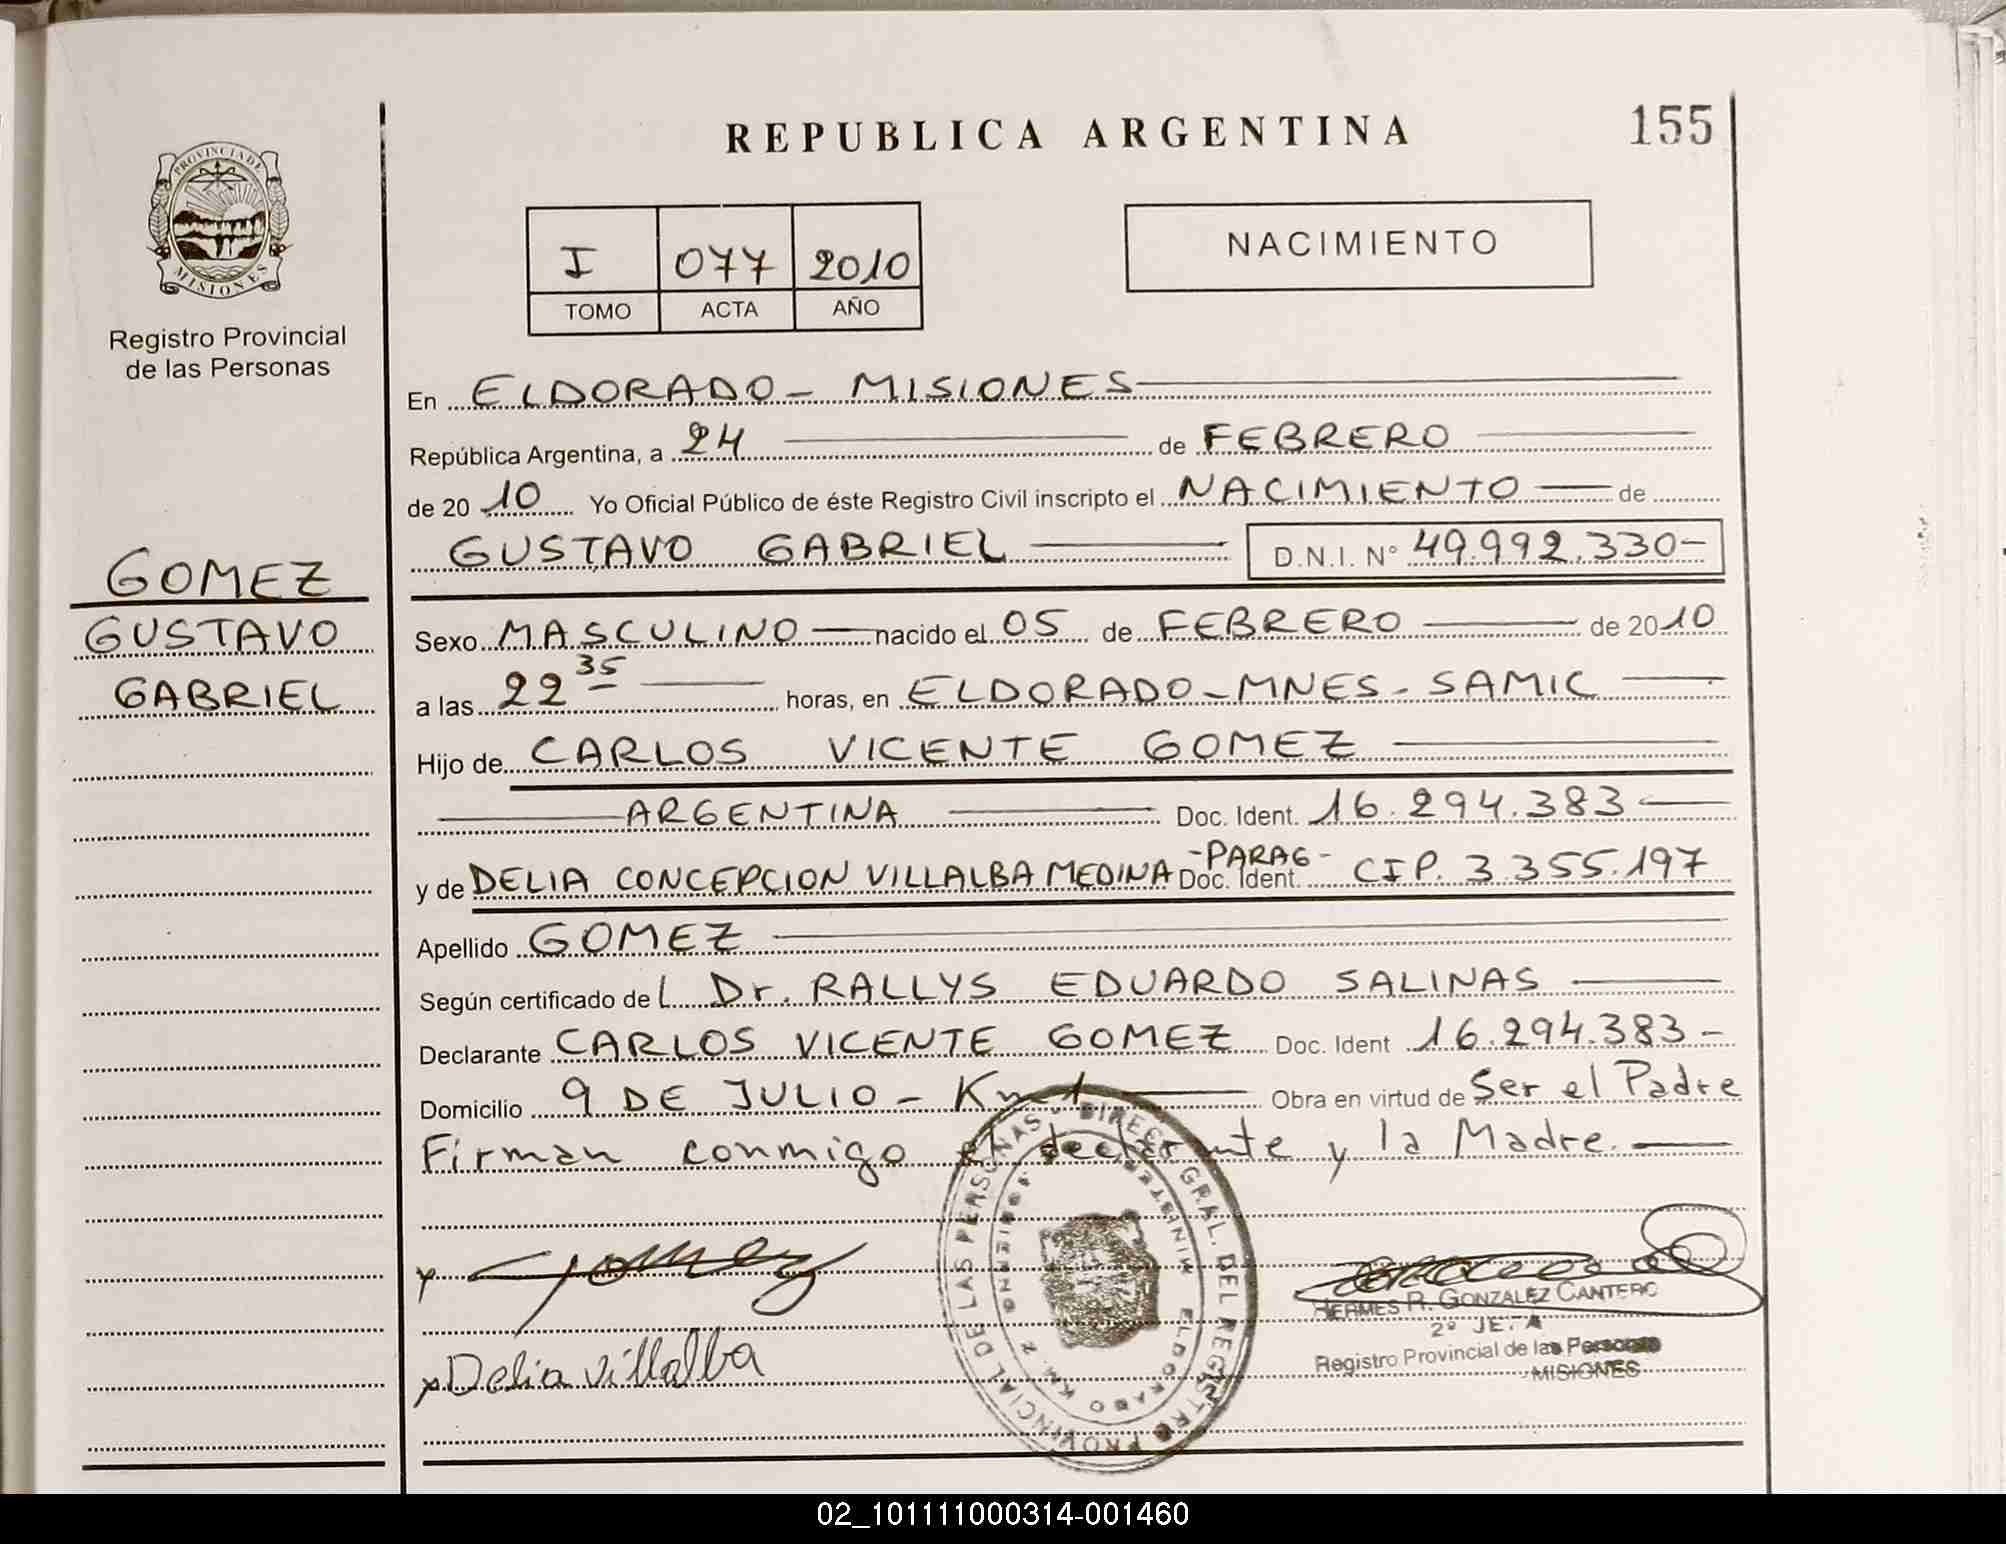 REPUBLICA ARGENTINA
155
PROVINCIA DE
MISIONES
Registro Provincial
de las Personas
I 077 2010
TOMO ACTA AÑO
NACIMIENTO
En ELDORADO - MISIONES
República Argentina, a 24 de FEBRERO
de 2010 Yo Oficial Público de éste Registro Civil inscripto el NACIMIENTO de
GUSTAVO GABRIEL D.N.I. N° 49.992.330-
GOMEZ
GUSTAVO
GABRIEL
Sexo MASCULINO nacido el 05 de FEBRERO de 2010
a las 22 35 horas, en ELDORADO - MNES - SAMIC
Hijo de CARLOS VICENTE GOMEZ
ARGENTINA Doc. Ident. 16.294.383
y de DELIA CONCEPCION VILLALBA MEDINA -PARAG- Doc. Ident. CIP. 3.355.197
Apellido GOMEZ
Según certificado de l Dr. RALLYS EDUARDO SALINAS
Declarante CARLOS VICENTE GOMEZ Doc. Ident 16.294.383-
Domicilio 9 DE JULIO - Km 1 Obra en virtud de Ser el Padre
Firman conmigo el declarante y la Madre.
Gomez
Delia Villalba
DIRECC. GRAL. DEL REGISTRO PROVINCIAL DE LAS PERSONAS
ELDORADO KM. 2
HERMES R. GONZALEZ CANTERO
2º JEFA
Registro Provincial de las Personas
MISIONES
02_101111000314-001460